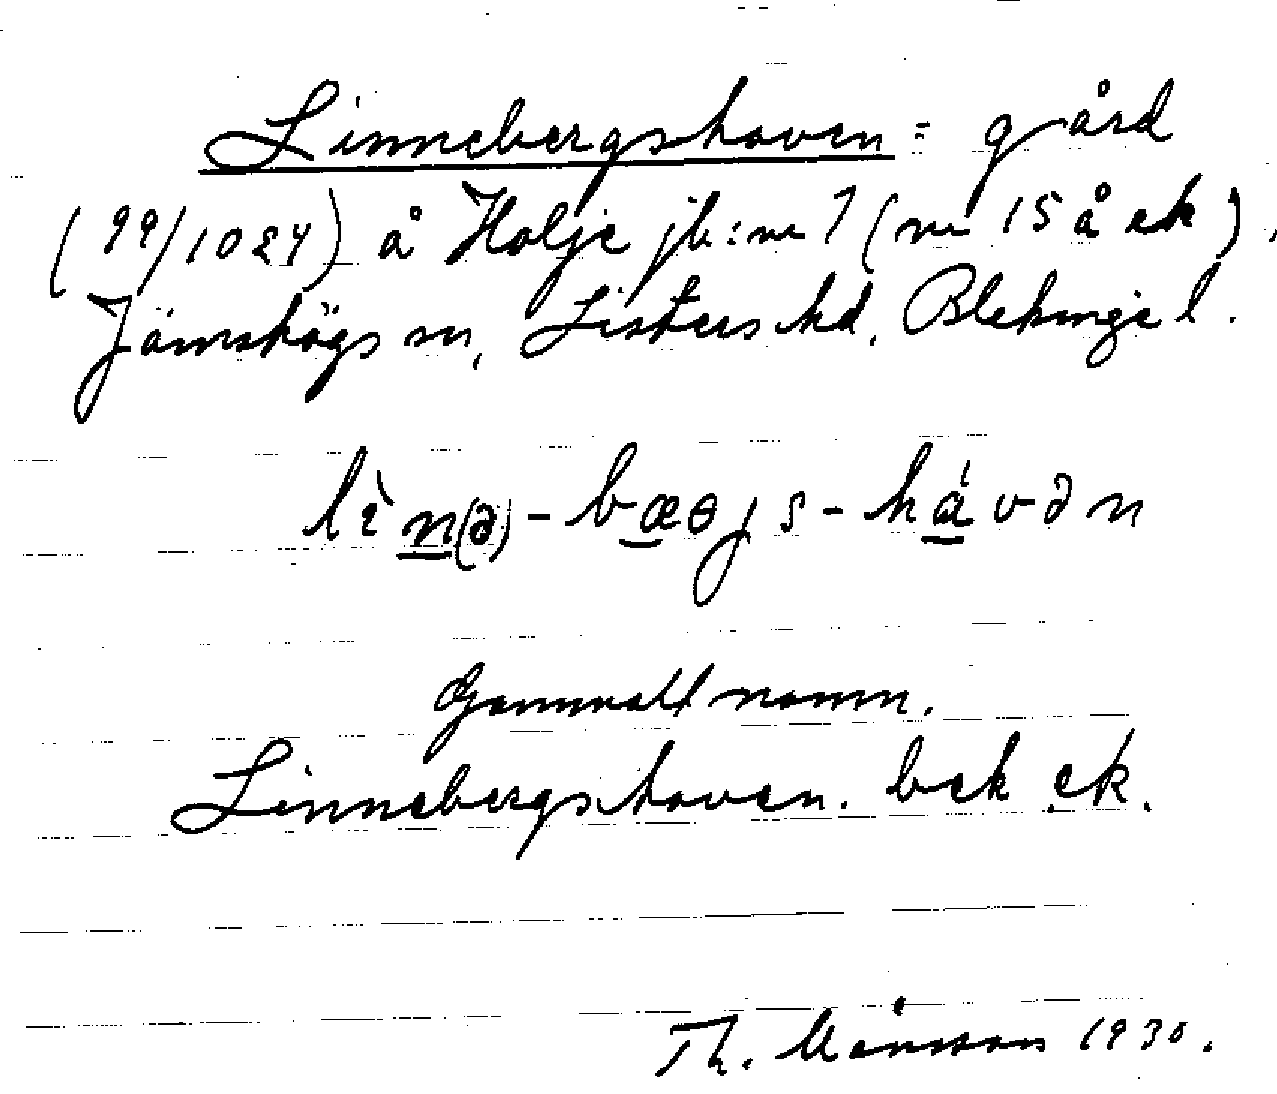 Linnebergshaven = gård
(99/1024) å Holje jb:nr 7 (nr 15 å ek),
Jämshögs sn, Listers hd, Blekinge l.
lìn(ə)-bæəjs-hávən
Gammalt namn.
Linnebergshaven. bek ek.
Th. Månsson 1930.